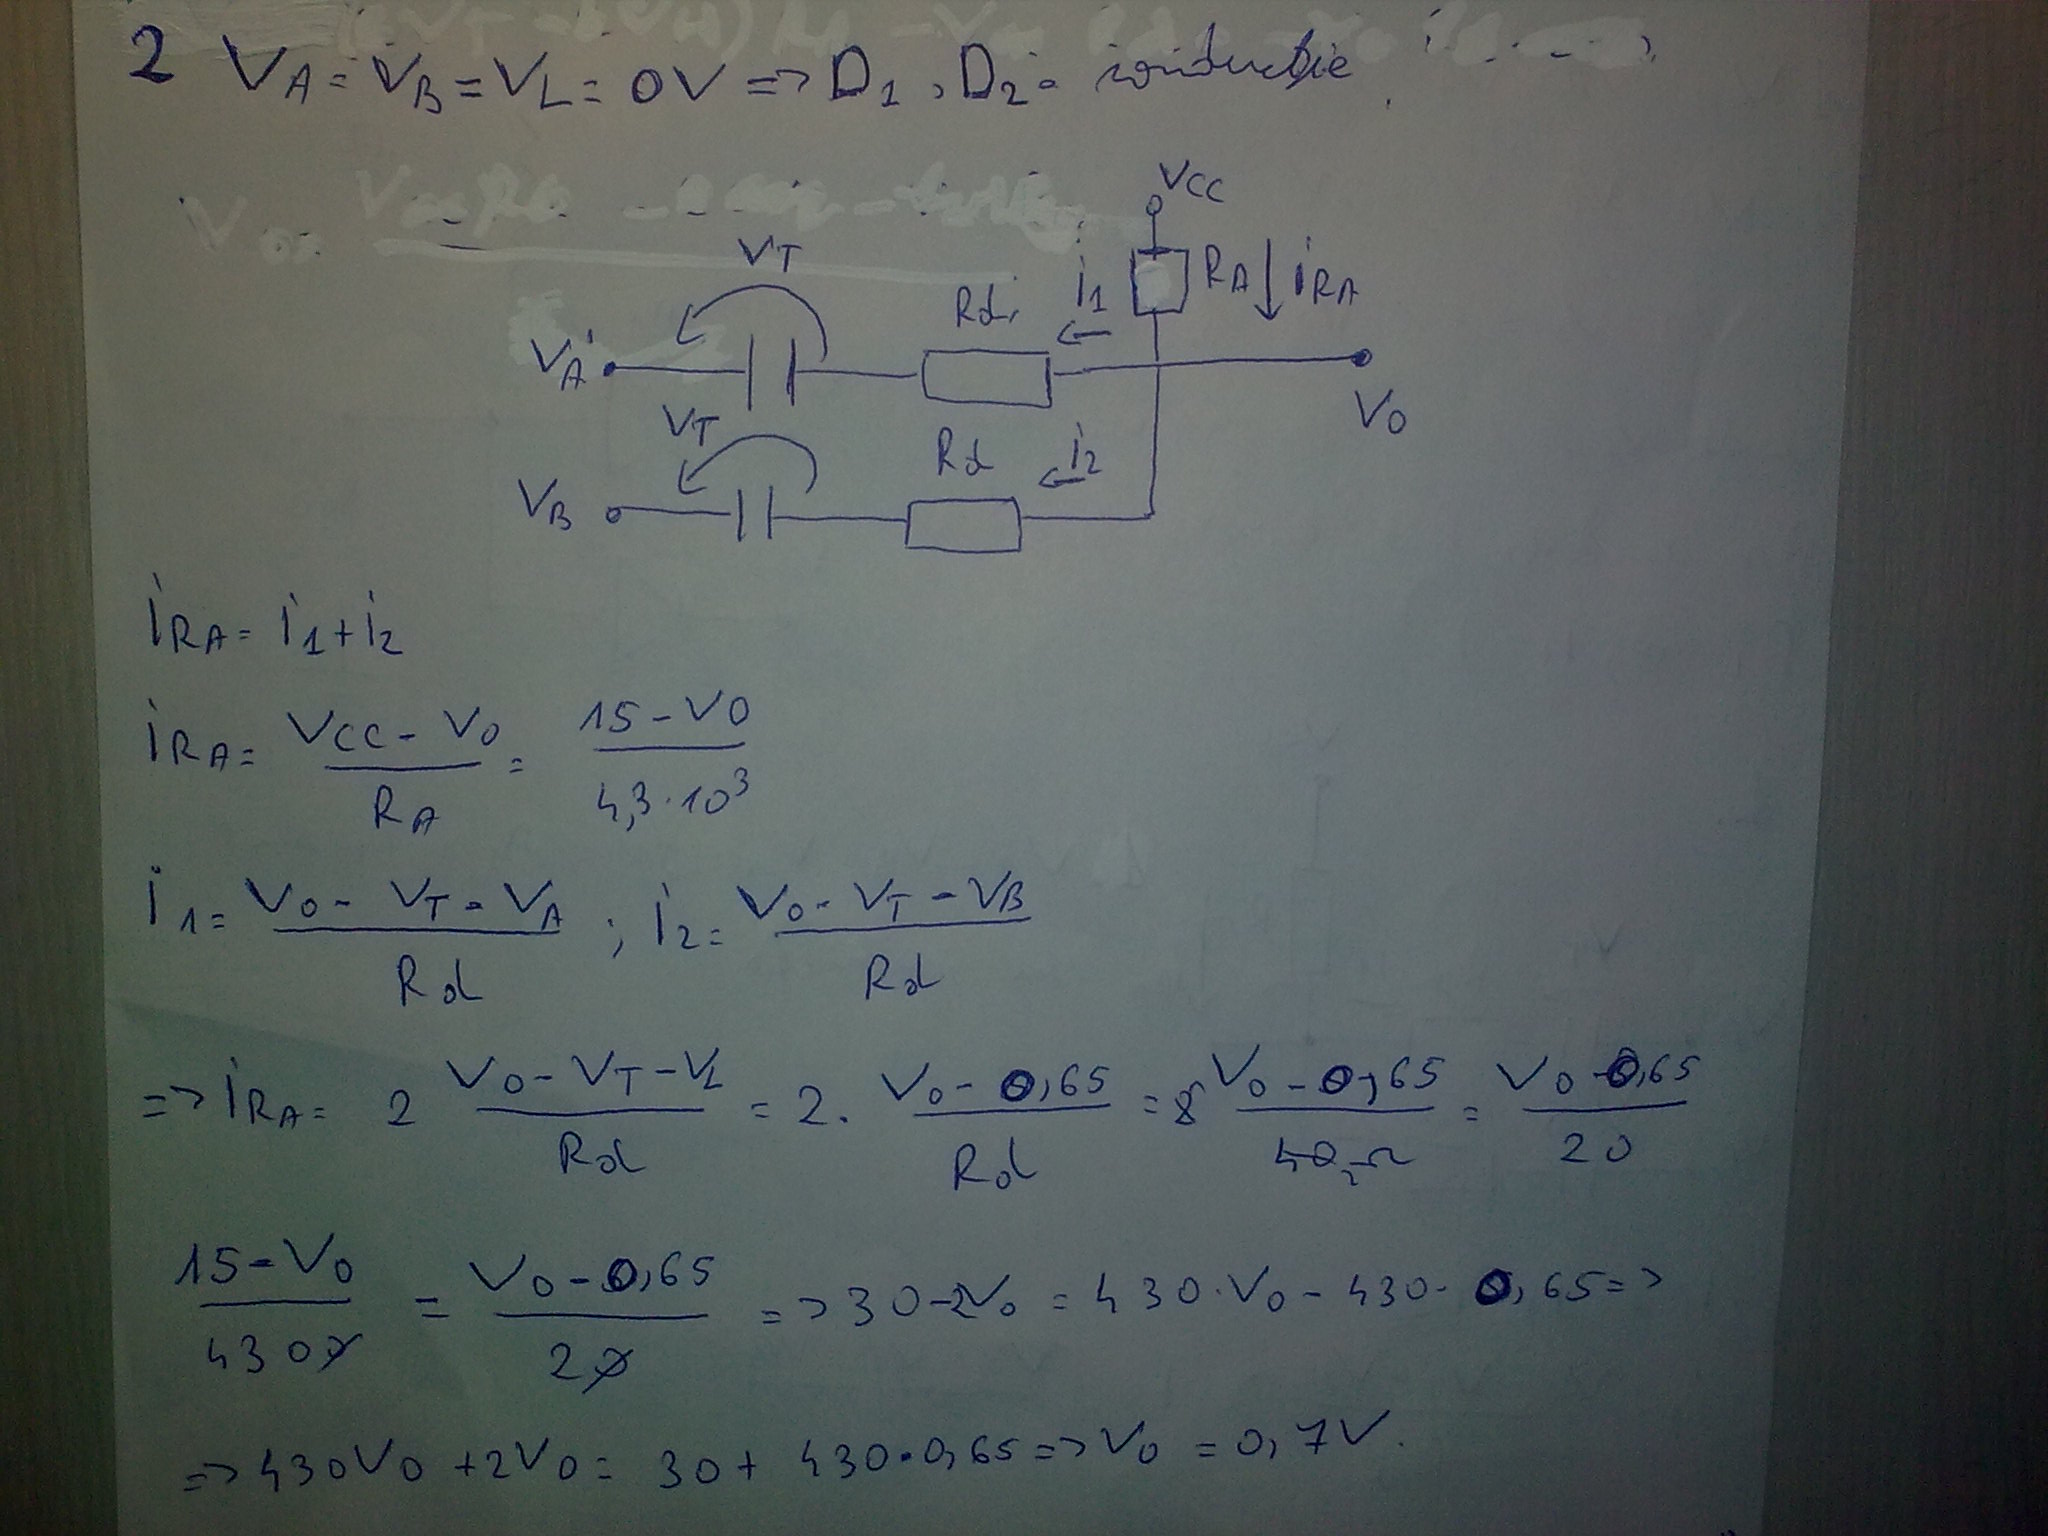 2 VA = VB = VL = 0V => D1, D2 - conducție
VCC
VT
Rd
i1
RA
iRA
VA
VO
VT
Rd
i2
VB
iRA = i1 + i2
iRA = (VCC - VO) / RA = (15 - VO) / (4,3 · 10³)
i1 = (VO - VT - VA) / Rd ; i2 = (VO - VT - VB) / Rd
=> iRA = 2 (VO - VT - VL) / Rd = 2 · (VO - 0,65) / Rd = 2 (VO - 0,65) / 40Ω = (VO - 0,65) / 20
(15 - VO) / 4300 = (VO - 0,65) / 20 => 30 - 2VO = 430 · VO - 430 · 0,65 =>
=> 430VO + 2VO = 30 + 430 · 0,65 => VO = 0,7V.